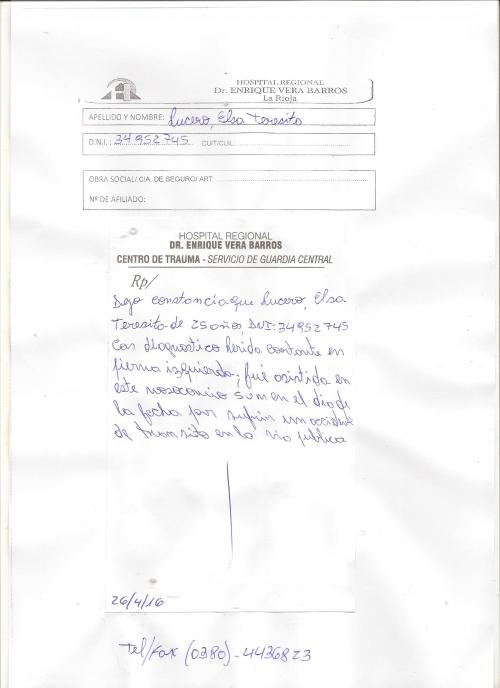 HOSPITAL REGIONAL
Dr. ENRIQUE VERA BARROS
La Rioja
APELLIDO Y NOMBRE: Lucero, Elsa Teresita
D.N.I.: 34952745 CUIT/CUIL:
OBRA SOCIAL/ CIA. DE SEGURO/ ART:
Nº DE AFILIADO:
HOSPITAL REGIONAL
DR. ENRIQUE VERA BARROS
CENTRO DE TRAUMA - SERVICIO DE GUARDIA CENTRAL
Rp/
Dejo constancia que Lucero, Elsa
Teresita de 25 años, DNI: 34952745
Con diagnostico herida cortante en
pierna izquierda; fué asistida en
este nosocomio en el día de
la fecha por sufrir un accidente
de transito en la via publica
26/4/16
Tel/Fax (0380)-4436823